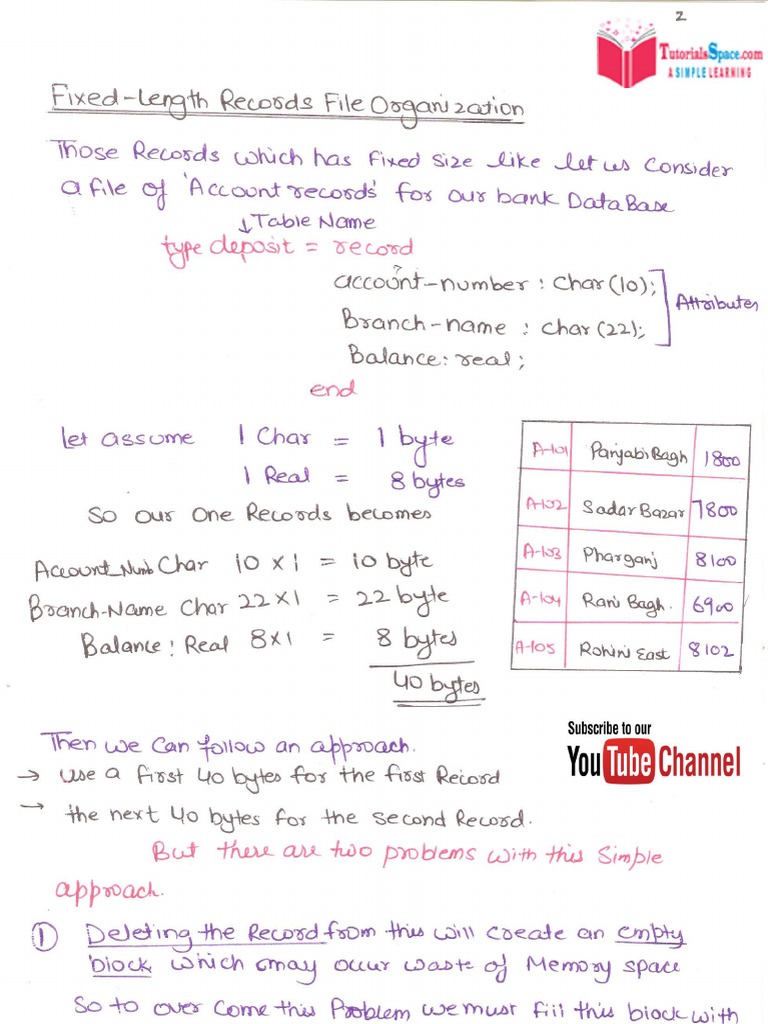 2
TutorialsSpace.com
A SIMPLE LEARNING
Fixed-Length Records File Organization
Those Records which has fixed size like let us consider
a file of 'Account records' for our bank DataBase
↓ Table Name
type deposit = record
account-number : char(10);
Attributes
Branch-name : char(22);
Balance: real;
end
Let assume 1 Char = 1 byte
1 Real = 8 bytes
So our One Records becomes
Account Numb Char 10 x 1 = 10 byte
Branch-Name Char 22 x 1 = 22 byte
Balance: Real 8x1 = 8 bytes
40 bytes
A-101 Panjabi Bagh 1800
A-102 Sadar Bazar 7800
A-103 Pharganj 8100
A-104 Rani Bagh. 6900
A-105 Rohini East 8102
Subscribe to our
YouTube Channel
Then we can follow an approach.
→ use a first 40 bytes for the first Record
→ the next 40 bytes for the second Record.
But there are two problems with this simple
approach.
① Deleting the Record from this will create an empty
block which may occur waste of Memory space
So to over come this Problem we must fill this block with